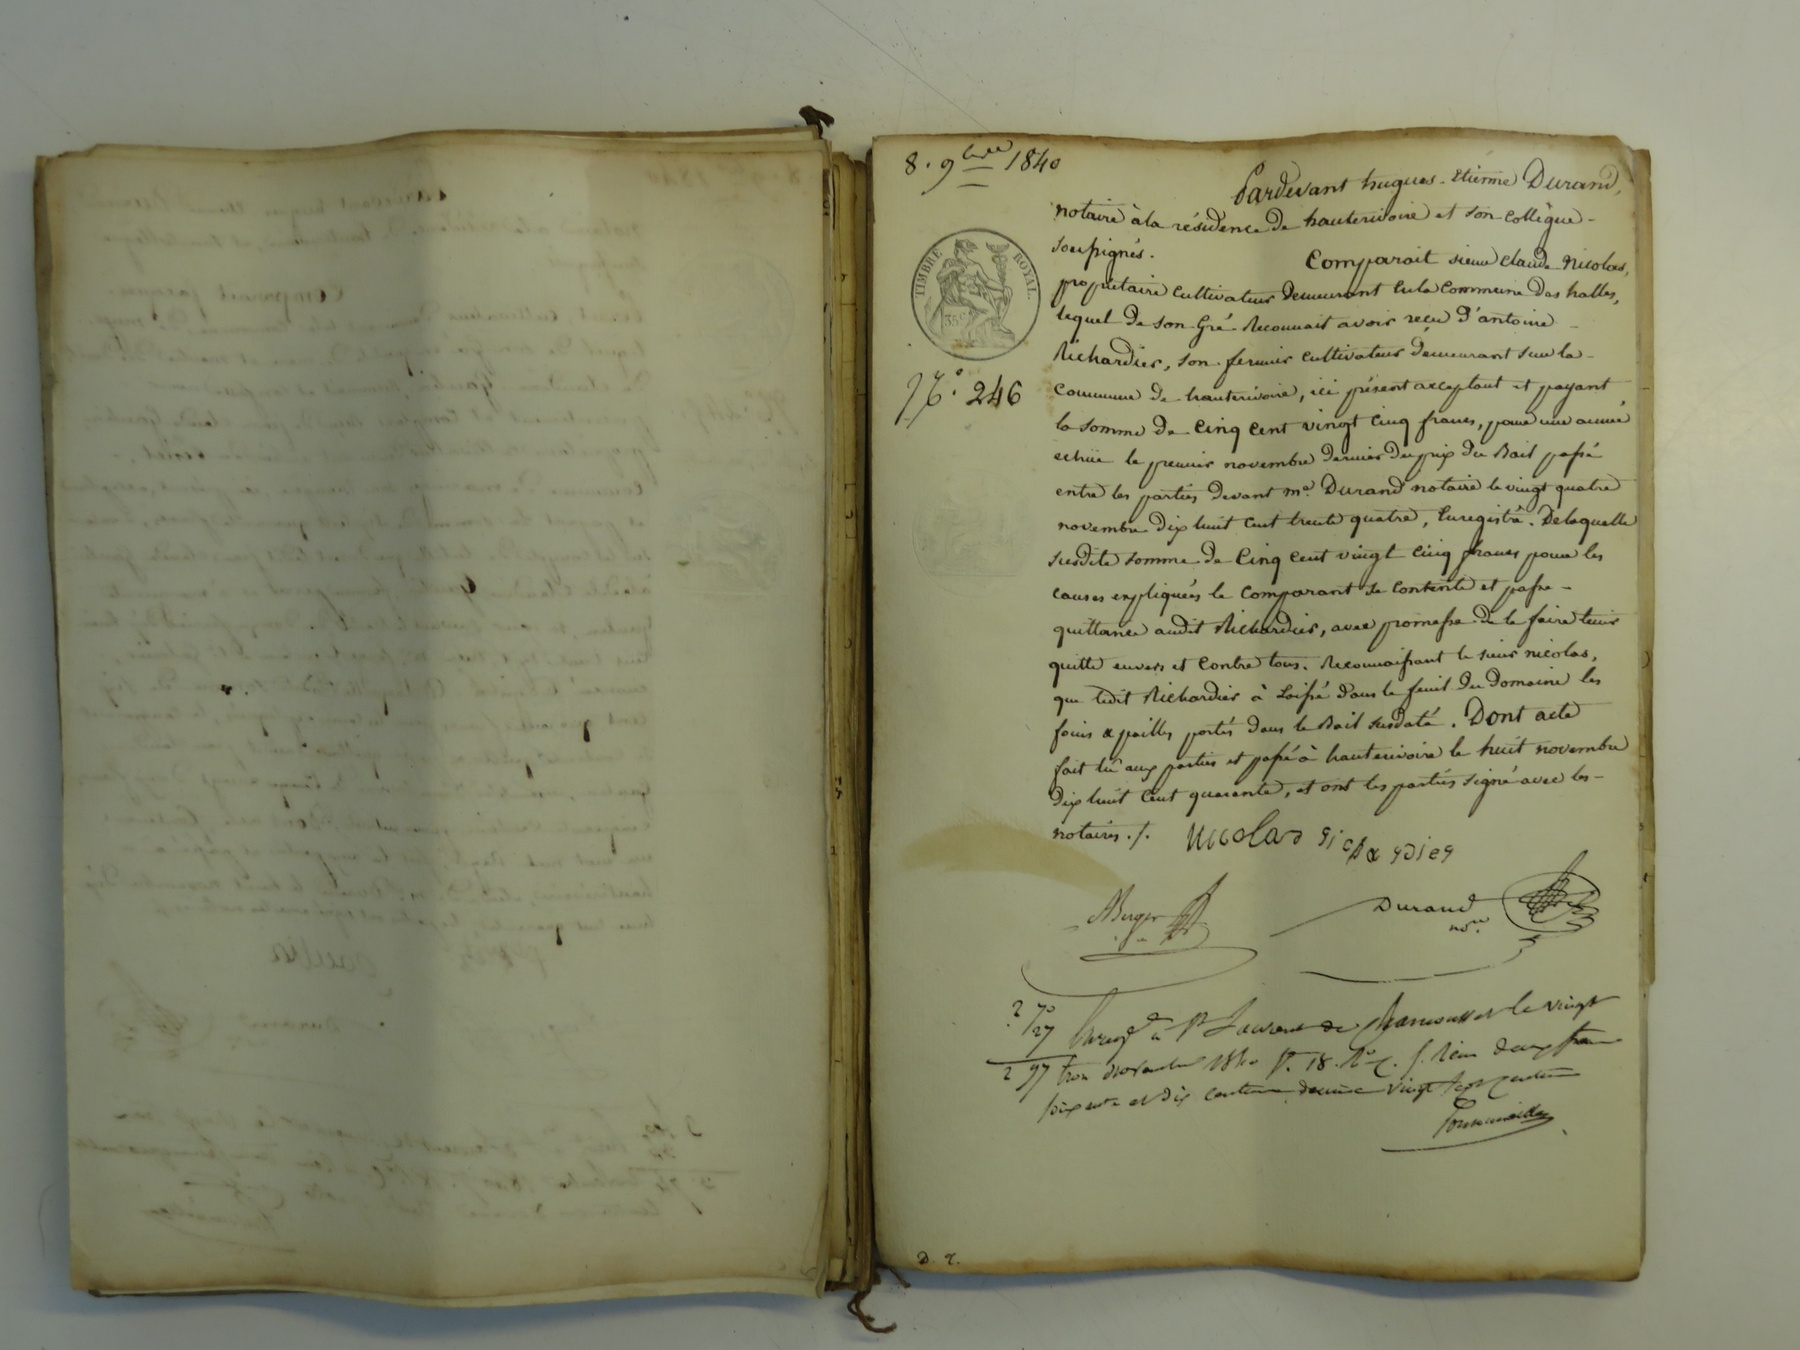 8. 9bre 1840
Pardevant hugues-etienne Durand,
notaire à la résidence de hauterivoire et son collègue-
soussignés.
Comparait sieur claude Nicolas,
propriétaire cultivateur demeurant en la Commune des halles,
lequel de son Gré Reconnait avoir reçu d'antoine
Richardier, son fermier cultivateur demeurant sur la-
commune de hauterivoire, ici présent acceptant et payant
la somme de Cinq cent vingt cinq francs, pour une année
echüe le premier novembre dernier du prix du Bail passé
entre les parties devant me. Durand notaire le vingt quatre
novembre dix huit cent trente quatre, Enregistré. De laquelle
susdite somme de Cinq cent vingt cinq francs pour les
causes expliquées le Comparant se contente et passe-
quittance audit Richardier, avec promesse de le faire tenir
quitte envers et contre tous. Reconnaissant le sieur nicolas,
que ledit Richardier à laissé dans le fenil du domaine les
foins & pailles portés dans le Bail susdaté. Dont acte
fait lu aux parties et passé à hauterivoire le huit novembre
dix huit cent quarante, et ont les parties signé avec les-
notaires./.
TIMBRE ROYAL.
35c
No. 246
Nicolas Richardier
ABerger
Durand
nore.
2 70
27
2 97
Enregé à St Laurent de Chamousset le vingt
trois novembre 1840 fo. 18. Ro c. f. Reçu deux francs
soixante et dix centimes decime vingt sept centimes
D. 2.